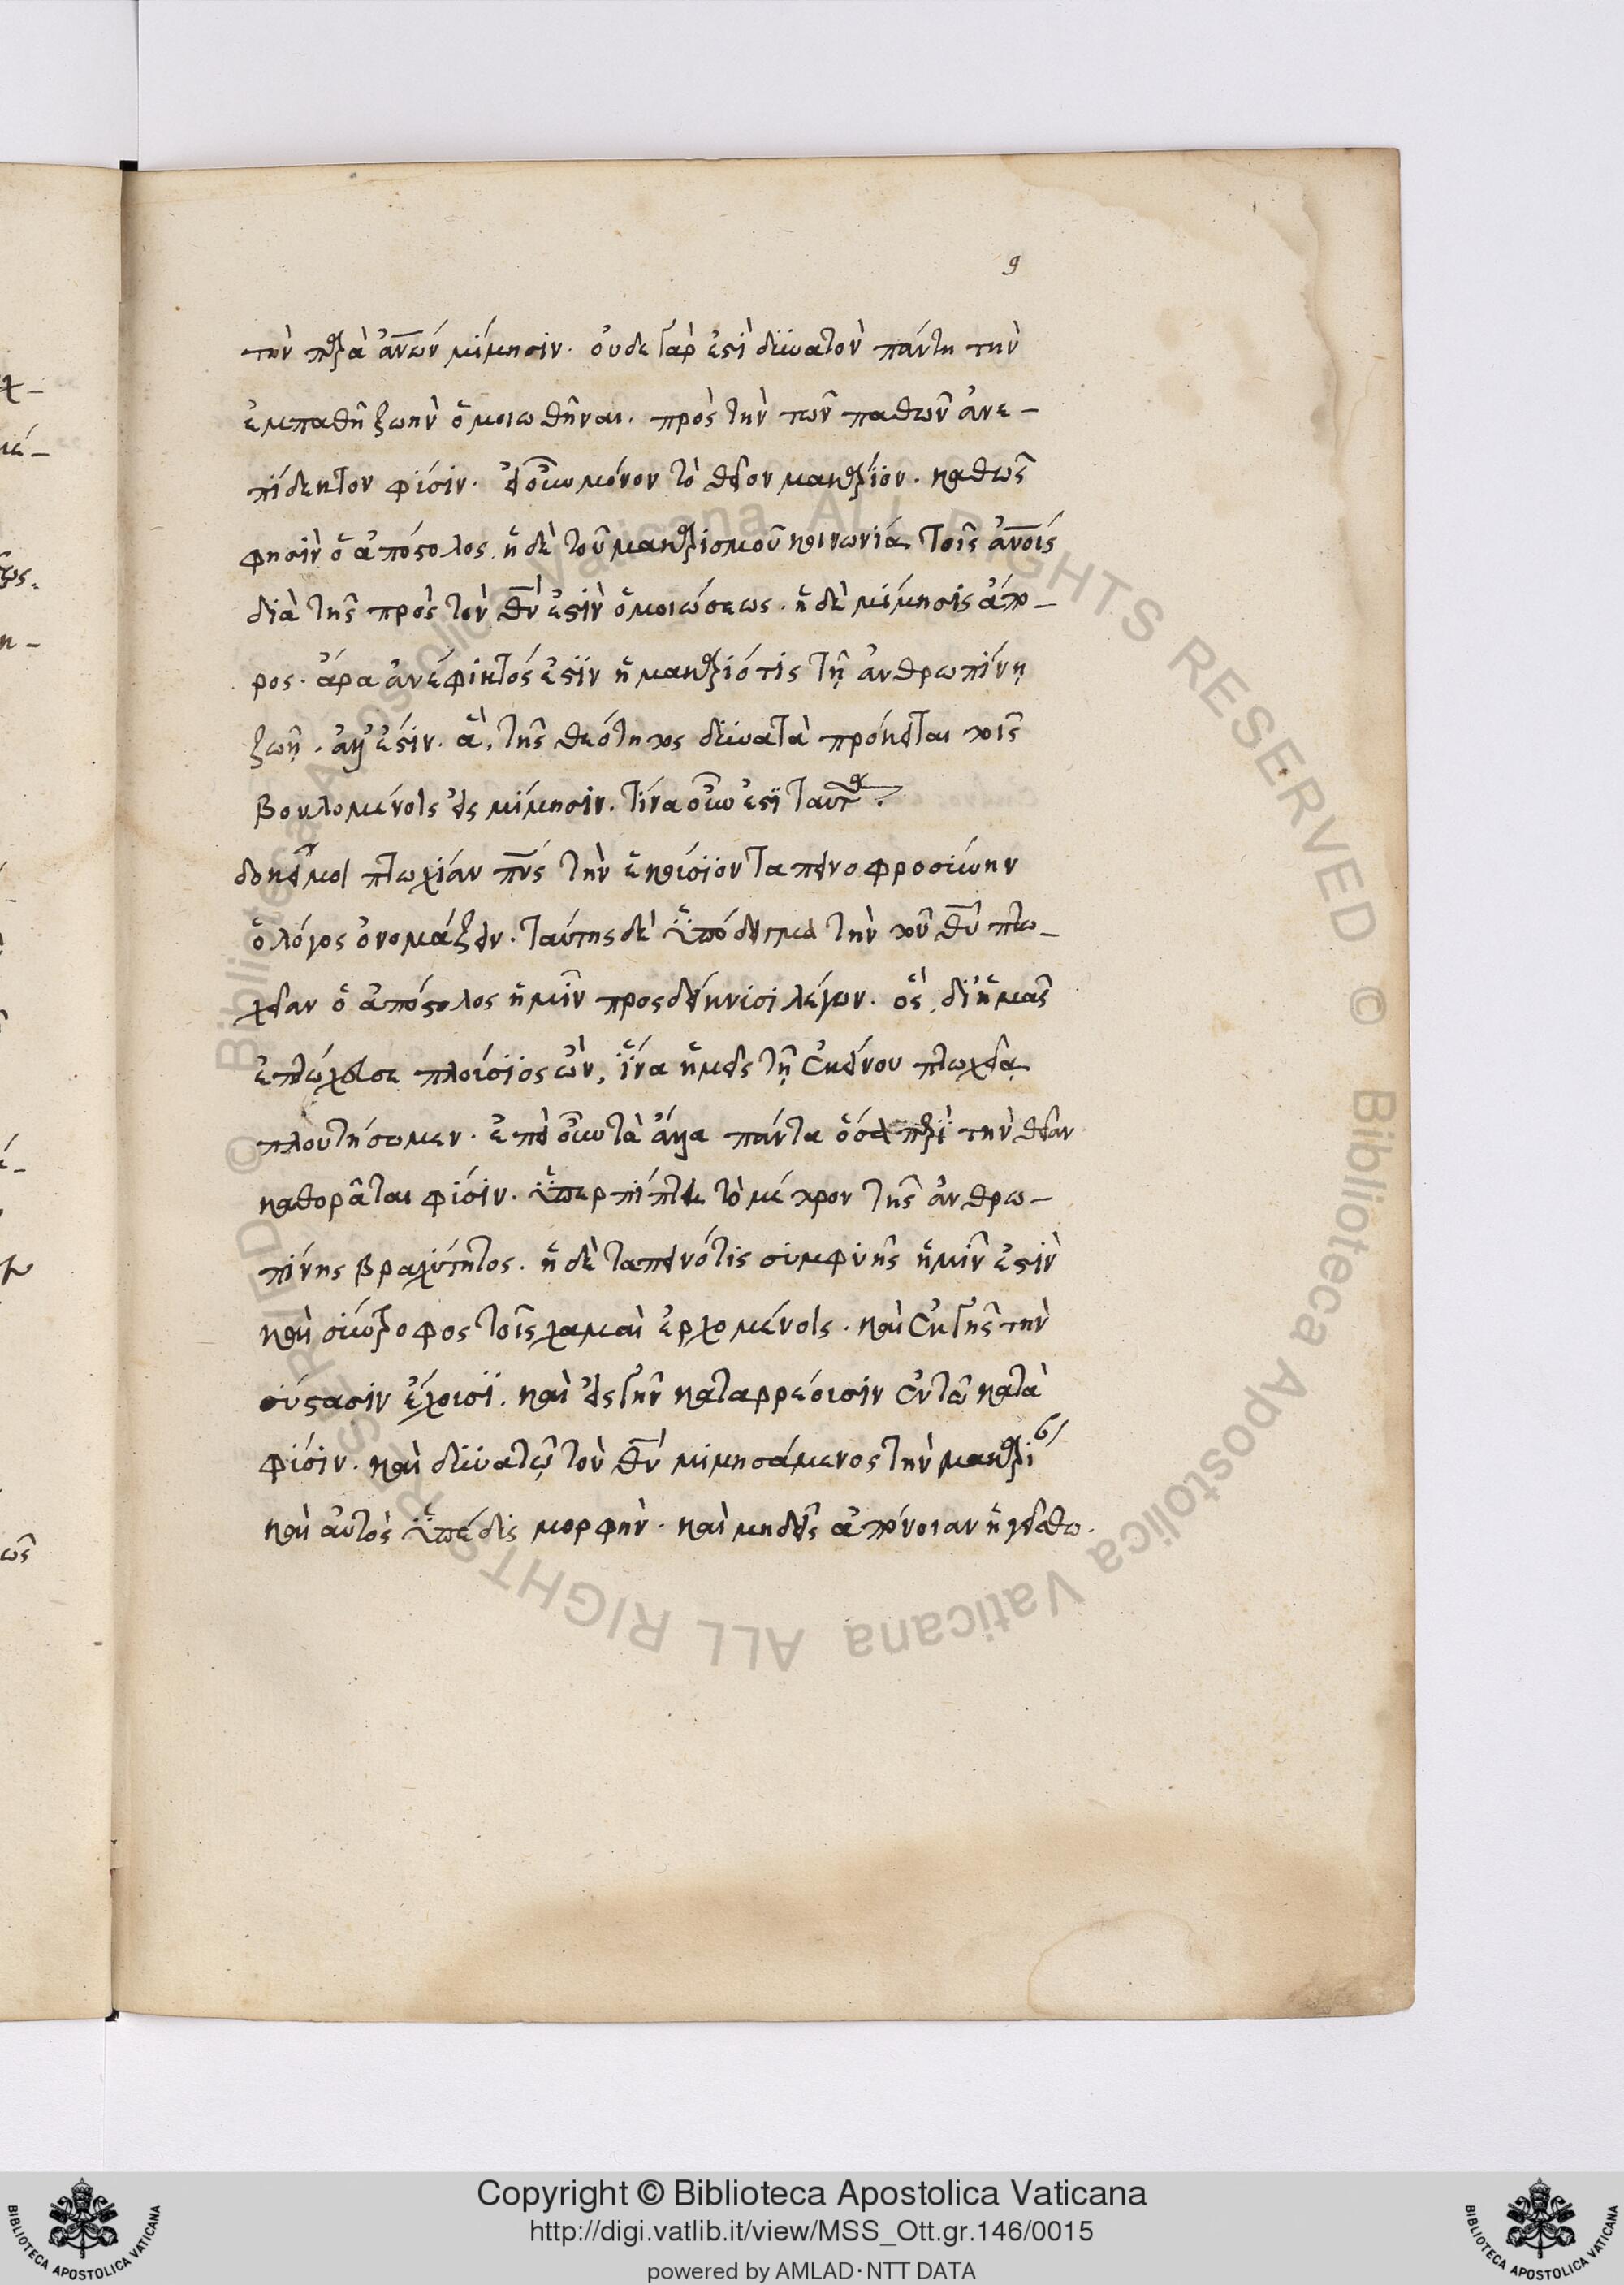 9
τὴν παρὰ ἀνων μίμησιν. οὐδε γὰρ ἐστὶ δυνατὸν πάντη τὴν
ἐμπαθῆ ζωὴν ὁμοιωθῆναι. πρὸς τὴν τῶν παθῶν ἀνε-
πίδεκτον φύσιν. εἰ οὖν μόνον τὸ θεῖον μακάριον. καθὼς
φησὶν ὁ ἀπόστολος. ἡ δὲ τοῦ μακαρισμοῦ κοινωνία τοῖς ἀνοις
διὰ τῆς πρὸς τὸν θν ἐστὶν ὁμοιώσεως. ἡ δὲ μίμησις ἄπο-
ρος. ἄρα ἀνέφικτός ἐστιν ἡ μακαριότις τῇ ἀνθρωπίνη
ζωῇ. ἀλλ' ἔστιν. ἃ, τῆς θεότητος δυνατὰ πρόκειται τοῖς
βουλομένοις εἰς μίμησιν. τίνα οὖν ἐστὶ ταῦτα.
δοκεῖ μοι πτωχίαν πνς τὴν ἑκούσιον ταπεινοφροσύνην
ὁ λόγος ὀνομάζειν. ταύτης δὲ ὑπόδειγμα τὴν τοῦ θυ πτω-
χείαν ὁ ἀπόστολος ἡμῖν προσδείκνυσι λέγων. ὃς, δι' ἡμᾶς
ἐπτώχευσε πλούσιος ὢν, ἵνα ἡμεῖς τῇ ἐκείνου πτωχεία
πλουτήσωμεν. ἐπεὶ οὖν τὰ ἄλλα πάντα ὅσα περὶ τὴν θείαν
καθορᾶται φύσιν. ὑπερπίπτει τὸ μέτρον τῆς ἀνθρω-
πίνης βραχύτητος. ἡ δὲ ταπεινότις συμφυὴς ἡμῖν ἐστὶν
καὶ σύντροφος τοῖς χαμαὶ ἐρχομένοις. καὶ ἐκ γῆς τὴν
σύστασιν ἔχουσι. καὶ εἰς γῆν καταρρέουσιν ἐν τῶ κατὰ
φύσιν. καὶ δυνατῷ τὸν θν μιμησάμενος τὴν μακαρί
καὶ αὐτὸς ὑπέδις μορφὴν. καὶ μηδεὶς ἀπόνοιαν ἡγείσθω.
Copyright © Biblioteca Apostolica Vaticana
http://digi.vatlib.it/view/MSS_Ott.gr.146/0015
powered by AMLAD·NTT DATA